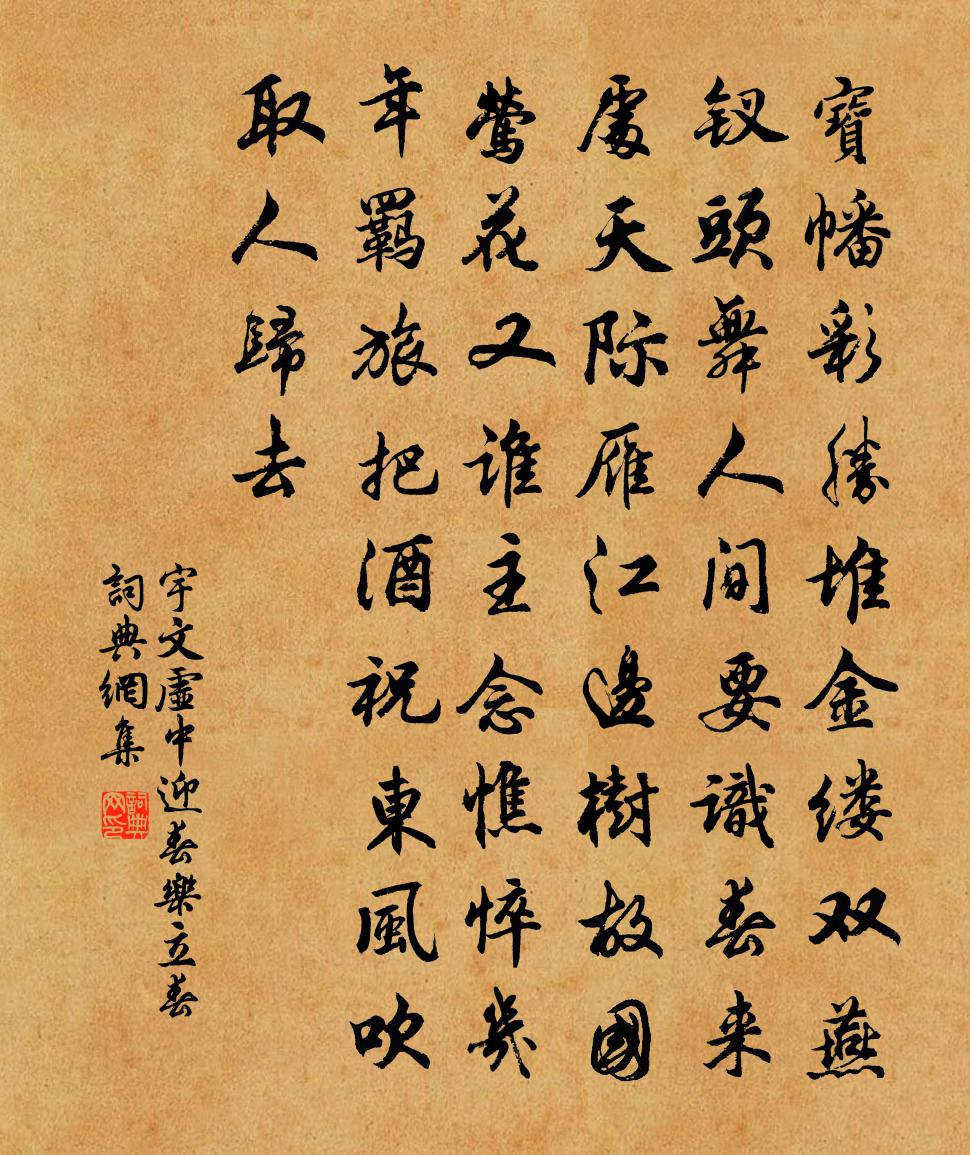 寶幡彩勝堆金缕双燕
钗頭舞人間要識春来
處天际雁江邊樹故國
鶯花又谁主念憔悴幾
年羈旅把酒祝東風吹
取人歸去
宇文虛中迎春樂立春
詞典網集
詞典网印